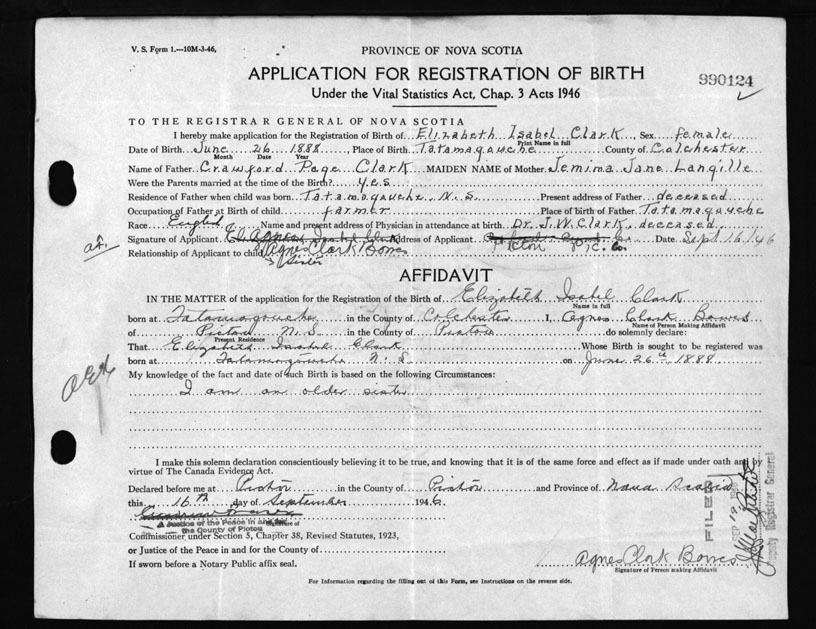 V. S. Form 1.---10M-3-46,
PROVINCE OF NOVA SCOTIA
APPLICATION FOR REGISTRATION OF BIRTH
990124
Under the Vital Statistics Act, Chap. 3 Acts 1946
TO THE REGISTRAR GENERAL OF NOVA SCOTIA
I hereby make application for the Registration of Birth of Elizabeth Isabel Clark, Sex female
Print Name in full
Date of Birth June 26 1888, Place of Birth Tatamagouche County of Colchester
Month Date Year
Name of Father Crawford Page Clark MAIDEN NAME of Mother Jemima Jane Langille
Were the Parents married at the time of the Birth? yes
Residence of Father when child was born Tatamagouche, N.S. Present address of Father deceased
Occupation of Father at Birth of child farmer Place of Birth of Father Tatamagouche
Race English Name and present address of Physician in attendance at birth Dr. J.W. Clark, deceased
Signature of Applicant Address of Applicant Pictou Pic. Co. Date Sept 16/46
Relationship of Applicant to child Agnes Clark Bowes
Sister
AFFIDAVIT
IN THE MATTER of the application for the Registration of the Birth of Elizabeth Isabel Clark
Name in full
born at Tatamagouche in the County of Colchester I, Agnes Clark Bowes
Name of Person Making Affidavit
of Pictou N.S. in the County of Pictou do solemnly declare:
Present Residence
That Elizabeth Isabel Clark Whose Birth is sought to be registered was
born at Tatamagouche N.S. on June 26th 1888
My knowledge of the fact and date of such Birth is based on the following Circumstances:
I am an older sister
I make this solemn declaration conscientiously believing it to be true, and knowing that it is of the same force and effect as if made under oath and by
virtue of The Canada Evidence Act.
Declared before me at Pictou in the County of Pictou and Province of Nova Scotia
this 16th day of September 1946
A Justice of the Peace in and for
the County of Pictou
Signature of
Commissioner under Section 5, Chapter 38, Revised Statutes, 1923,
or Justice of the Peace in and for the County of
If sworn before a Notary Public affix seal.
Agnes Clark Bowes
Signature of Person making Affidavit
FILED
SEP 19
Deputy Registrar General
For Information regarding the filling out of this Form, see Instructions on the reverse side.